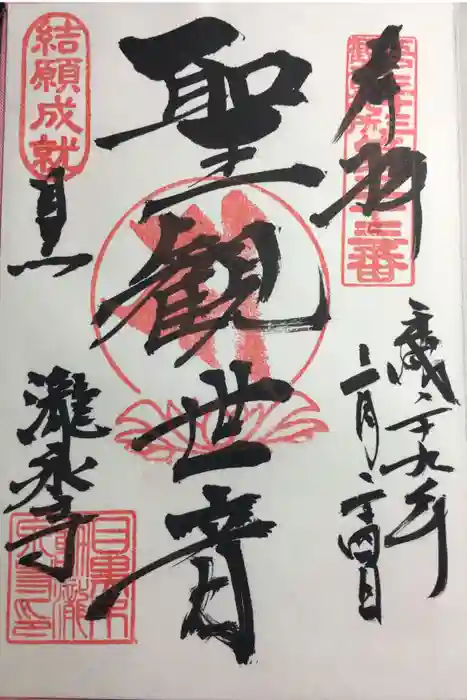 奉拝
第三十三番
平成二十九年
二月二十四日
聖観世音
結願成就
目黒
瀧泉寺